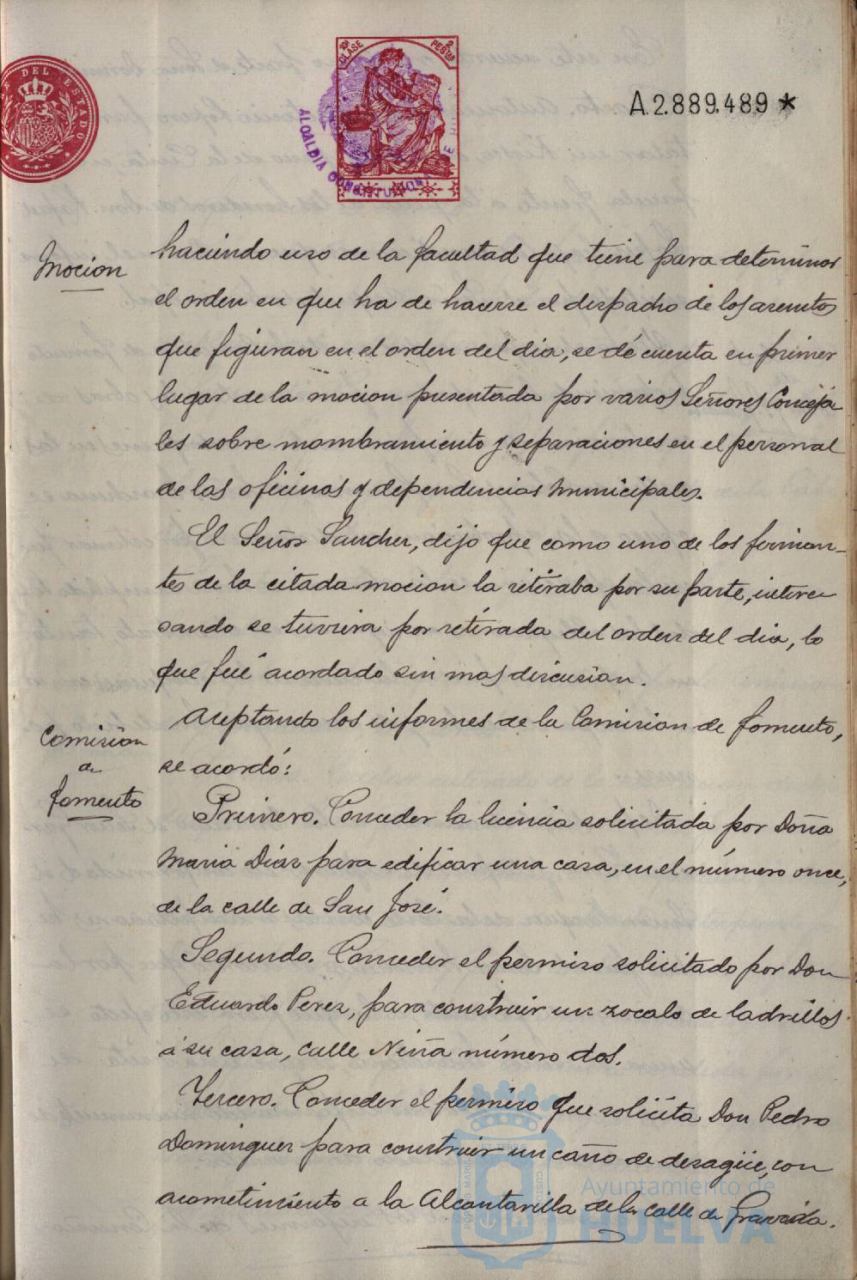 DEL ESTADO
10ª CLASE 2 PESTAS
ALCALDIA CONSTITUCIONAL DE HUELVA
A.2.889.489 *
Mocion
haciendo uso de la facultad que tiene para determinar
el orden en que ha de hacerse el despacho de los asuntos
que figuran en el orden del dia, se dé cuenta en primer
lugar de la mocion presentada por varios Señores Conceja
les sobre nombramiento y separaciones en el personal
de las oficinas y dependencias municipales.
El Señor Sanchez, dijo que como uno de los firman-
tes de la citada mocion la retiraba por su parte, intere
sando se tuviera por retirada del orden del dia, lo
que fué acordado sin mas discusion.
Comision
de
fomento
Aceptando los informes de la Comision de fomento,
se acordó:
Primero. Conceder la licencia solicitada por Doña
Maria Diaz para edificar una casa, en el número once,
de la calle de San José.
Segundo. Conceder el permiso solicitado por Don
Eduardo Perez, para construir un zocalo de ladrillos
á su casa, calle Niña número dos.
Tercero. Conceder el permiso que solicita Don Pedro
Dominguez para construir un caño de desagüe, con
acometimiento a la Alcantarilla de la calle de Gravina.
Ayuntamiento de
HUELVA